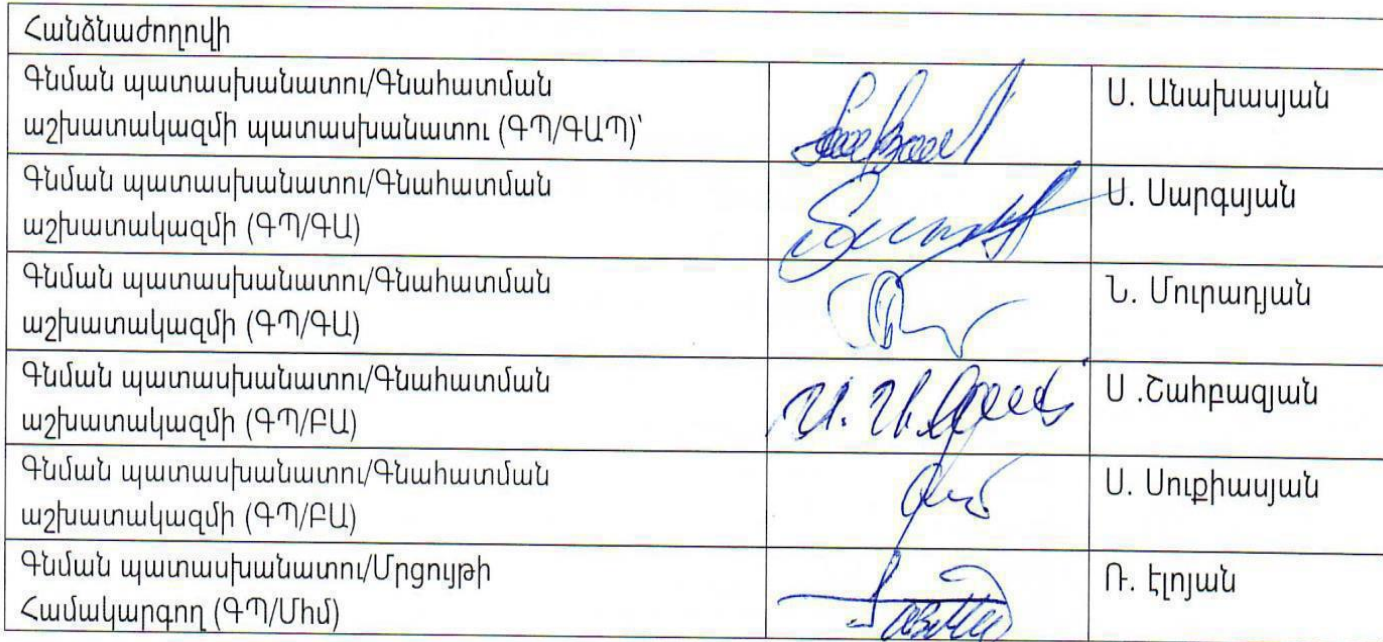 Հանձնաժողովի
Գնման պատասխանատու/Գնահատման
աշխատակազմի պատասխանատու (ԳՊ/ԳԱՊ)՝
Ս. Անախասյան
Գնման պատասխանատու/Գնահատման
աշխատակազմի (ԳՊ/ԳԱ)
Ս. Սարգսյան
Գնման պատասխանատու/Գնահատման
աշխատակազմի (ԳՊ/ԳԱ)
Ն. Մուրադյան
Գնման պատասխանատու/Գնահատման
աշխատակազմի (ԳՊ/ԲԱ)
Ս .Շահբազյան
Գնման պատասխանատու/Գնահատման
աշխատակազմի (ԳՊ/ԲԱ)
Ս. Սուքիասյան
Գնման պատասխանատու/Մրցույթի
Համակարգող (ԳՊ/Մհմ)
Ռ. Էլոյան